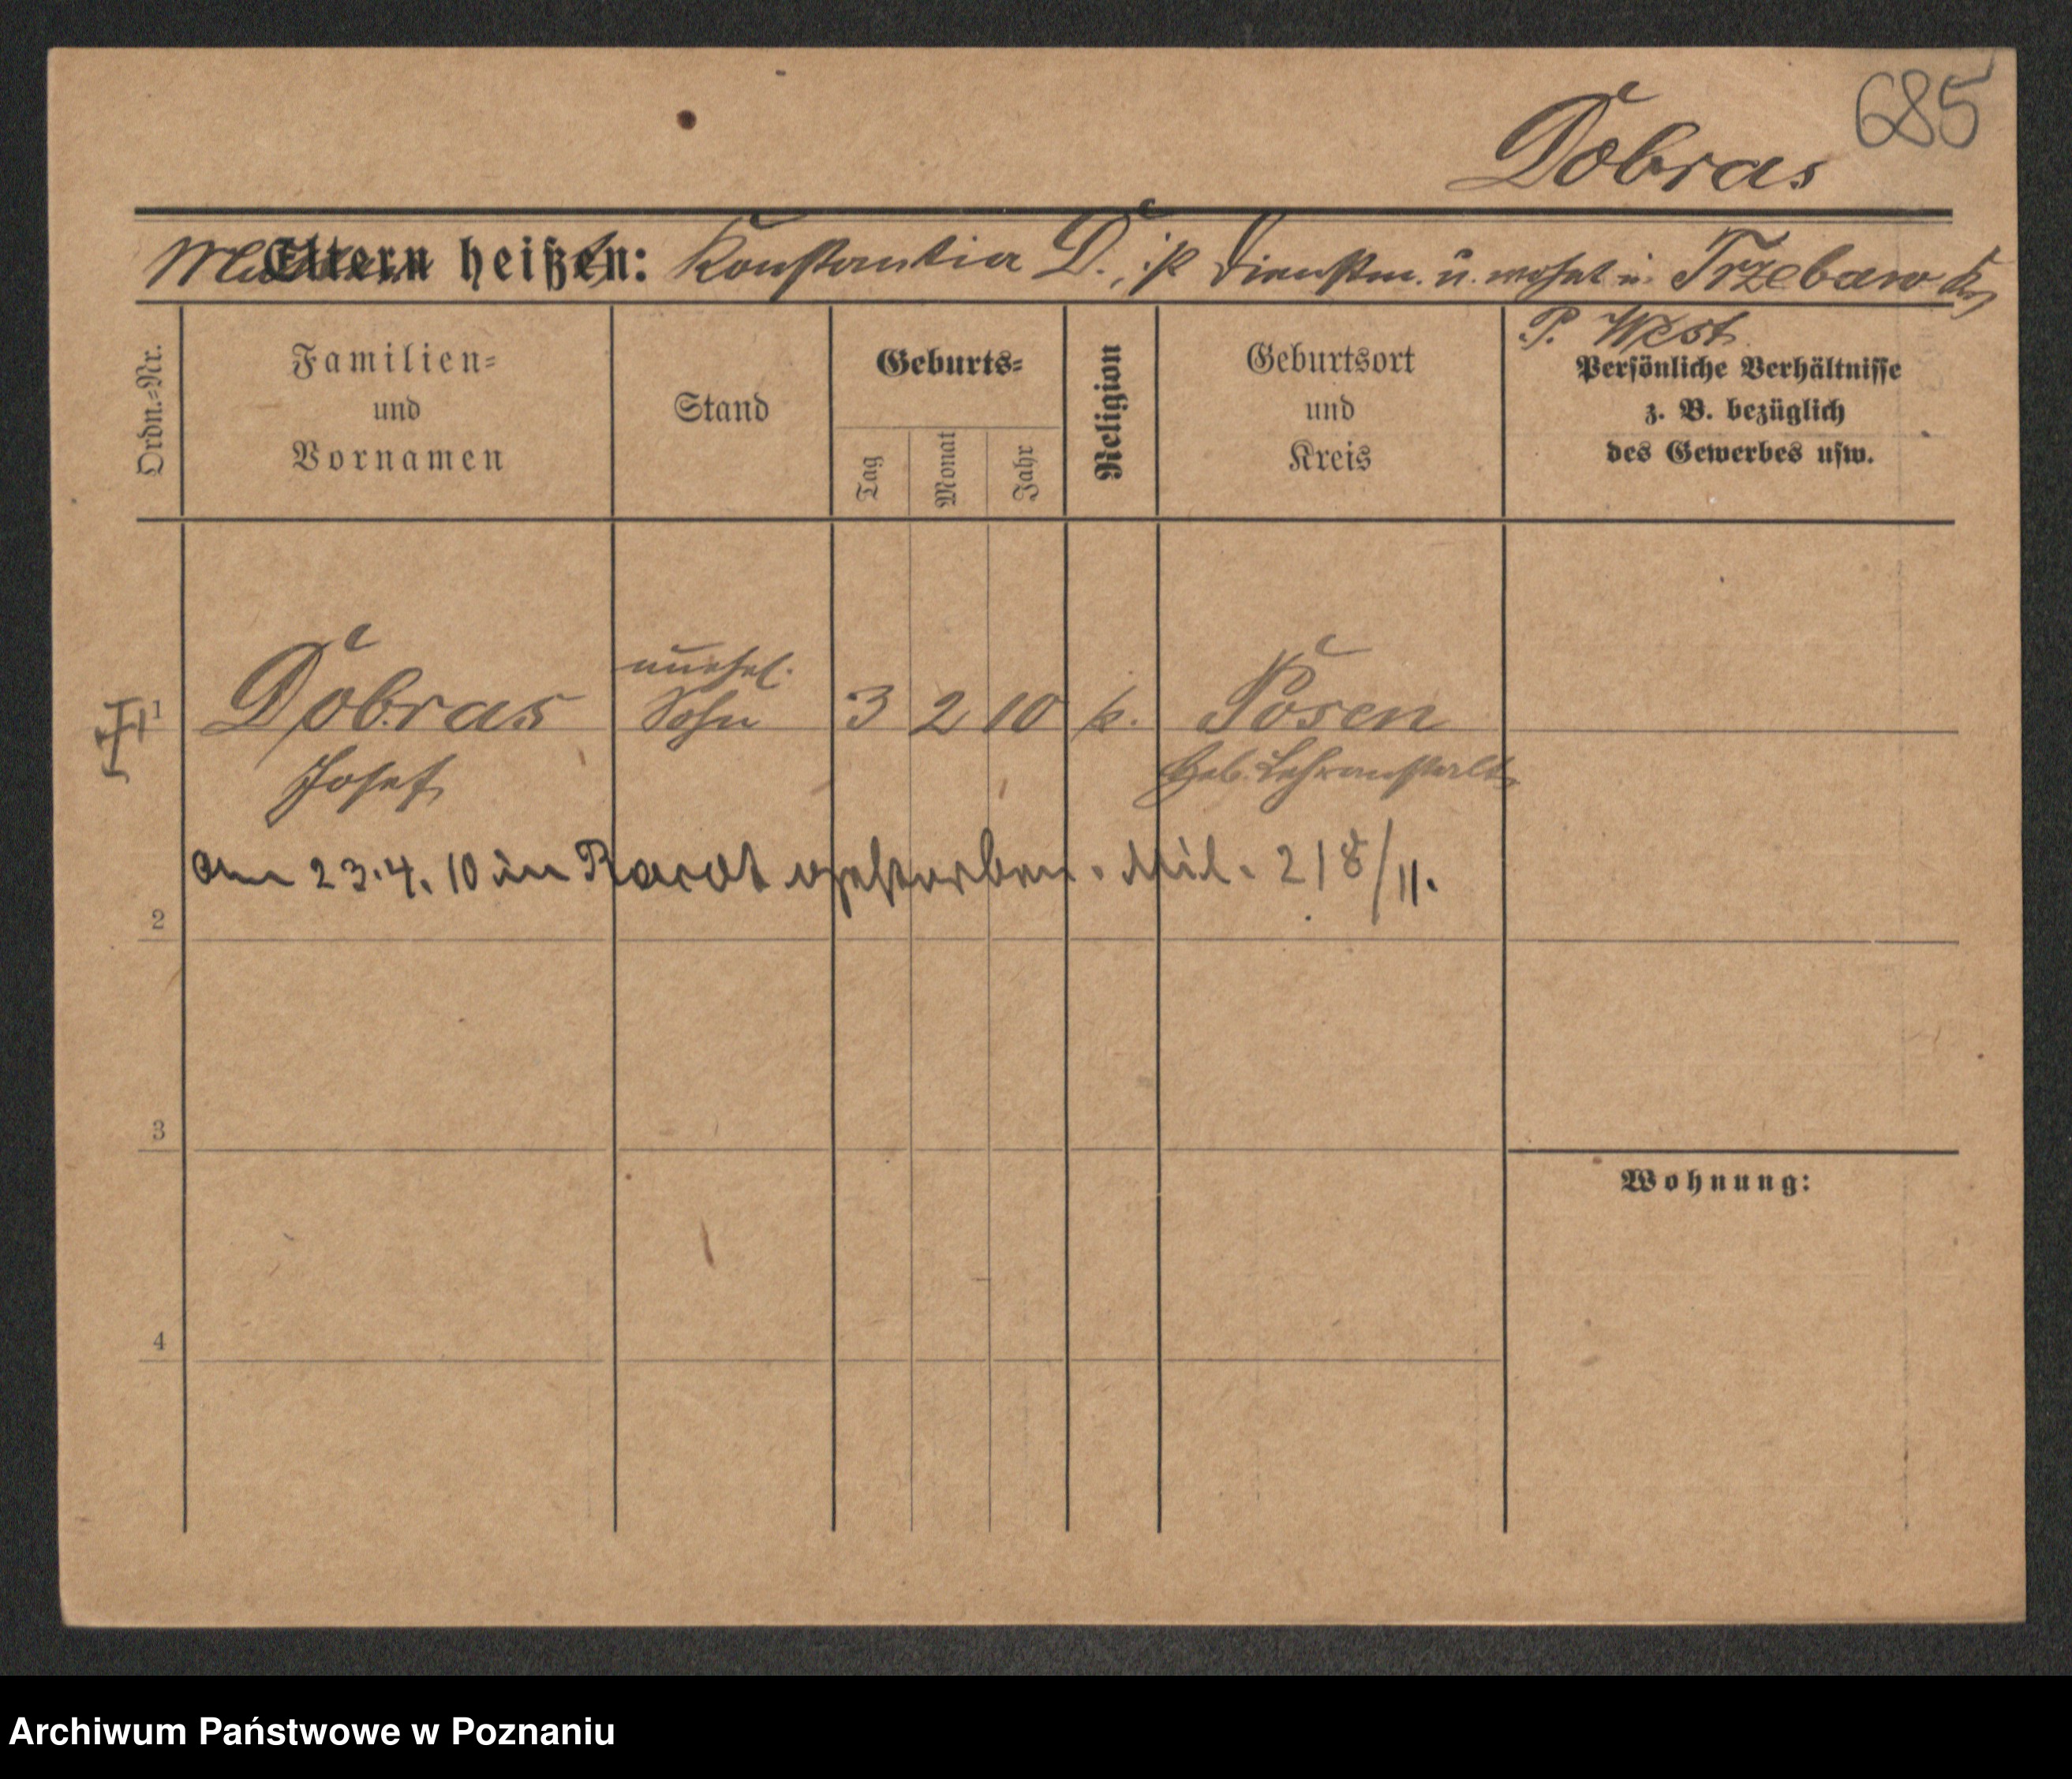 685
Dobras
Mutter heißt
Eltern heißen: Konstantia D., ist Dienstm. u. wohnt in Trzebaw Krs
P. West.
Ordn.=Nr.
Familien=
und
Vornamen
Stand
Geburts=
Tag
Monat
Jahr
Religion
Geburtsort
und
Kreis
Persönliche Verhältnisse
z. B. bezüglich
des Gewerbes usw.
unehel.
1 Dobras Sohn 3 2 10 k. Posen
Josef Heb. Lehranstalt
am 23.4.10 in gestorben. Mil. 218/11.
2
3
Wohnung:
4
Archiwum Państwowe w Poznaniu